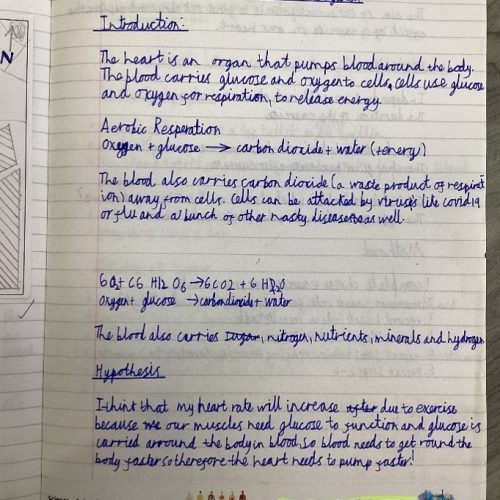 N
Introduction:
The heart is an organ that pumps blood around the body.
The blood carries glucose and oxygen to cells, cells use glucose
and oxygen for respiration, to release energy.
Aerobic Resperation
Oxygen + glucose → carbon dioxide + water (+energy)
The blood also carries carbon dioxide (a waste product of respirat
ion) away from cells. Cells can be attacked by virus's like covid 19
or flu and a bunch of other nasty diseases as well.
6O2+ C6 H12 O6 → 6CO2 + 6 H2O
Oxygen+ glucose → carbondioxide+ water
The blood also carries sugar, nitrogen, nutrients, minerals and hydrogen
Hypothesis
I think that my heart rate will increase after due to exercise
because me our muscles need glucose to function and glucose is
carried arround the body in blood. So blood needs to get round the
body faster so therefore the heart needs to pump faster!